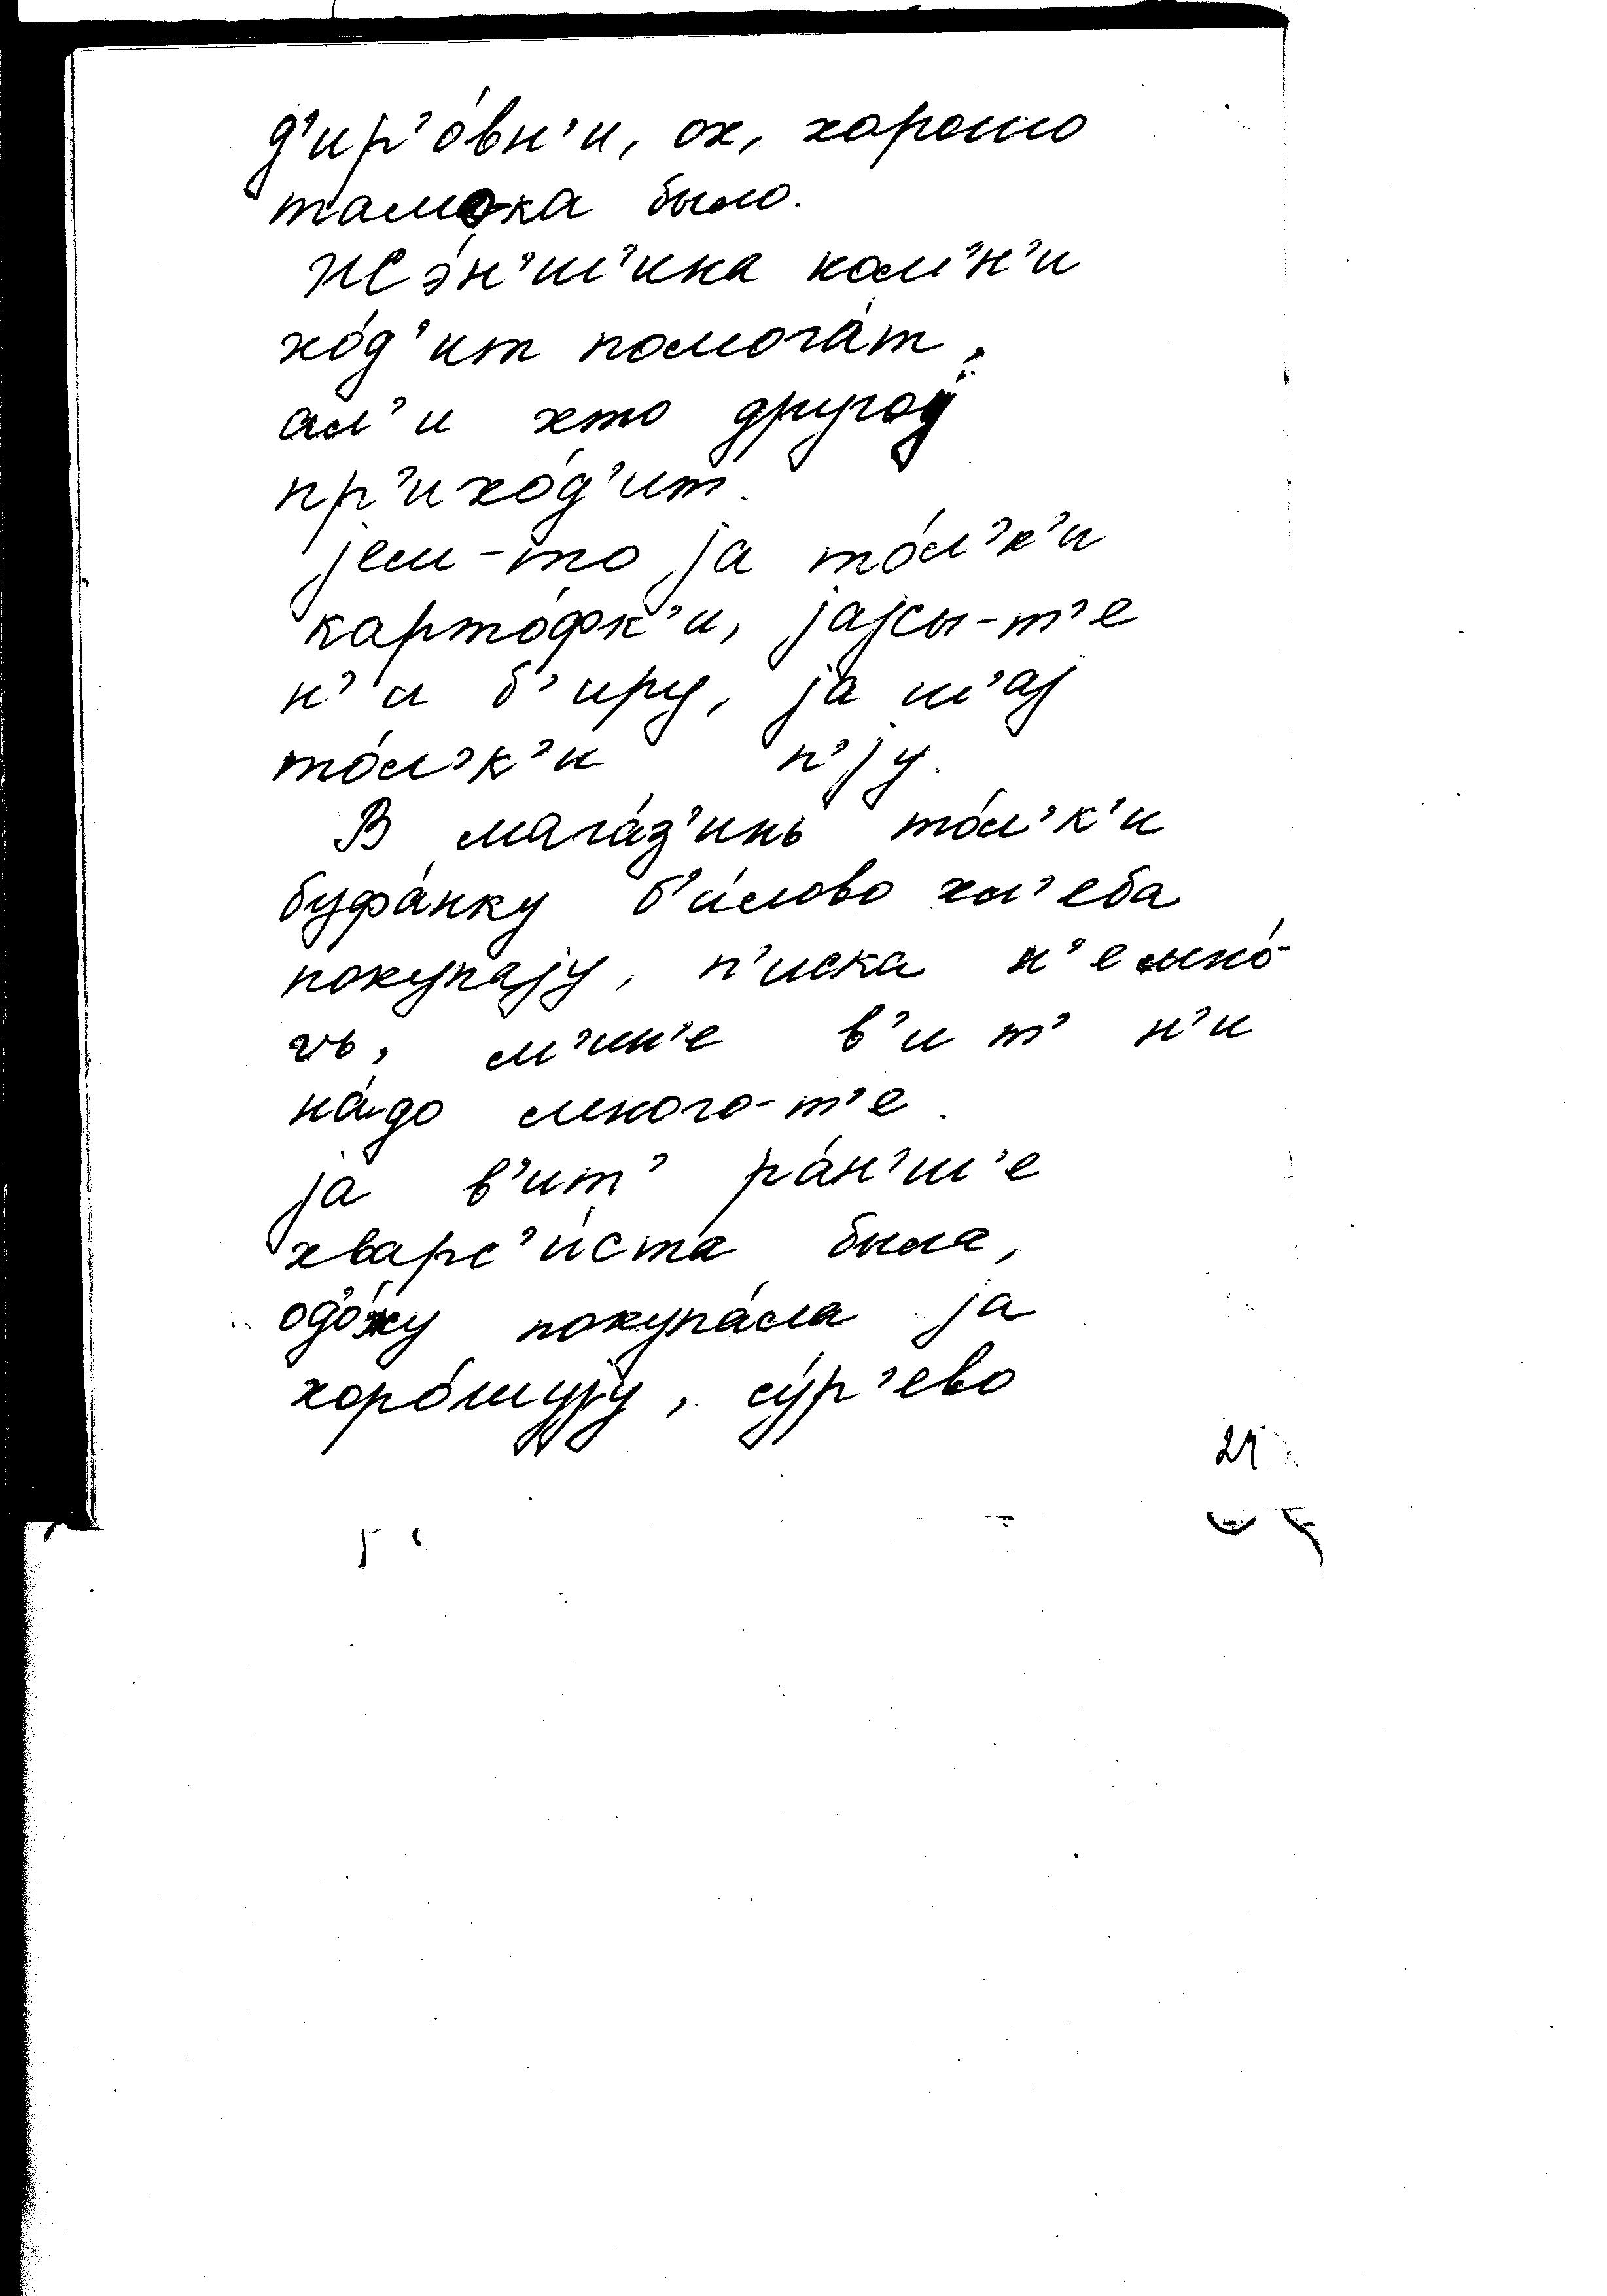 д'ир'о́вн'и, ох, хорошо
тамока было.
Жэ́н'ш'ина ком'н'и
хо́д'ит помога́т,
ал'и хто другоj
пр'ихо́д'ит.
jем-то jа то́л'к'и
карто́фк'и, jаjсы-т'е
н'и б'иру, jа ш'аj
то́л'к'и п'jу.
В мага́з'инь то́л'к'и
буфа́нку б'и́лово хл'еба
покупаjу, п'иска н'емно́-
гъ, м'ин'е в'ит' н'и
на́до много-т'е.
jа в'ит' ра́н'ш'е
хварс'и́ста была,
од'о́жу покупа́ла jа
хоро́шуjу, су́р'ево
24